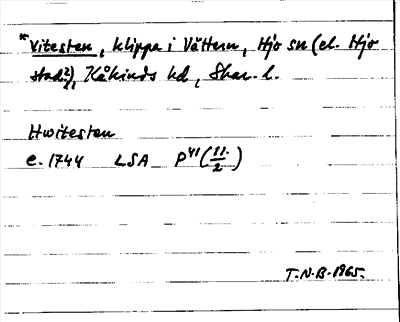 *Vitesten, klippa i Vättern, Hjo sn (el. Hjo
stad?), Kåkinds hd, Skar. l.
Hwitesten
e. 1744 LSA P41 (11/2)
T.N.B. 1965.